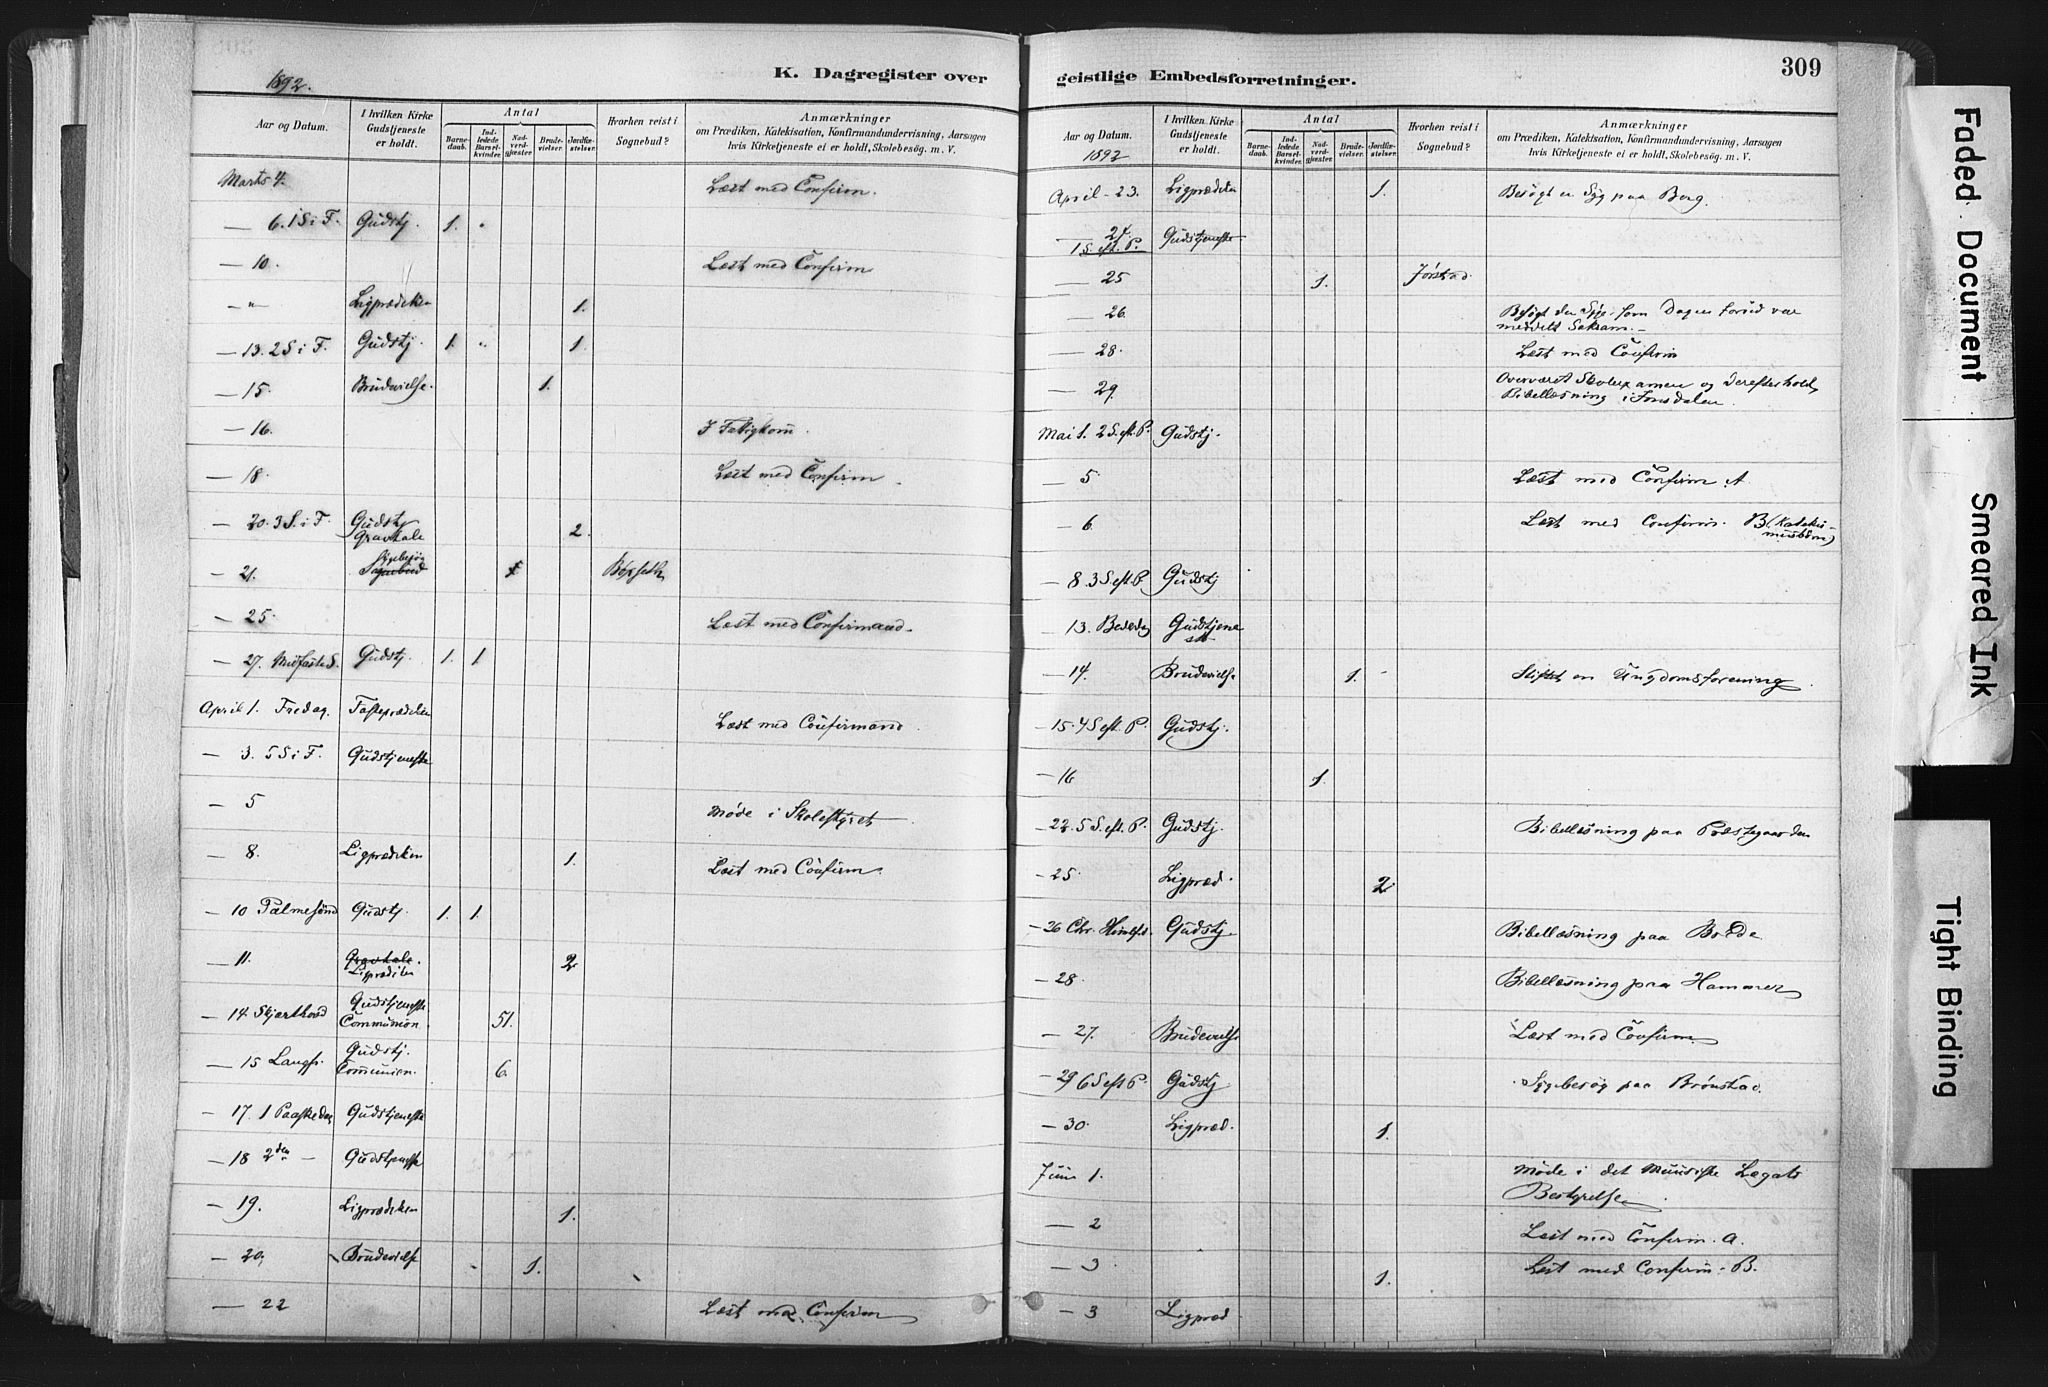 1892.
K. Dagregister over
Aar og Datum.
I hvilken Kirke Gudstjeneste er holdt.
Antal
Barnedaab.
Indledede Barselkvinder.
Nadverdgjæster
Brudevielser.
Jordfæstelser.
Hvorhen reist i Sognebud?
Anmærkninger
om Prædiken, Katekisation, Konfirmandundervisning, Aarsagen
hvis Kirketjeneste ei er holdt, Skolebesøg. m. V.
Marts 4. Læst med Confirm.
— 6. 1 S i F. Gudstj. 1. "
— 10. Læst med Confirm
— " Ligprædiken 1.
— 13. 2 S i F. Gudstj. 1. " 1.
— 15. Brudevielse. 1.
— 16. I Fattigkom.
— 18. Læst med Confirm.
— 20. 3 S. i F. Gudstj
Gravtale 2.
— 21. Sygebesøg
Sognebud
— 25. Læst med Confirmand.
— 27. Midfaste S. Gudstj. 1. 1
April 1. Fredag. Fasteprædiken Læst med Confirmand.
— 3. 5 S i F. Gudstjeneste
— 5 Møde i Skolestyret
— 8. Ligprædiken 1. Læst med Confirm.
— 10 Palmesønd Gudstj. 1. 1.
— 11. Gravtale.
Ligprædiken 2
— 14. Skjærthorsd Gudstjeneste
Communion. 51.
— 15 Langfr. Gudstj.
Communion. 6.
— 17. 1 Paaskedag Gudstjeneste
— 18 2den — Gudstjeneste
— 19. Ligprædiken 1.
— 20. Brudevielse 1.
— 22 Læst med Confirm
geistlige Embedsforretninger.
309
Aar og Datum.
1892
I hvilken Kirke Gudstjeneste er holdt.
Antal
Barnedaab.
Indledede Barselkvinder.
Nadverdgjæster.
Brudevielser.
Jordfæstelser.
Hvorhen reist i Sognebud?
Anmærkninger
om Prædiken, Katekisation, Konfirmandundervisning, Aarsagen
hvis Kirketjeneste ei er holdt, Skolebesøg. m. V.
April — 23. Ligprædiken 1. Besøgt en Syg paa Borg.
— 24.
1 S. eft. P. Gudstjeneste
— 25 1. Jørstad
— 26. Besøgt den Syge som Dagen forud var
meddelt Sakram.
— 28. Læst med Confirm
— 29. Overværet Skolexamen og derefter holdt
Bibellæsning i
Mai 1. 2 S. eft. P. Gudstj.
— 5 Læst med Confirm A
— 6. Læst med Confirm. B (Katekis-
musbørn)
— 8. 3 S eft P. Gudstj
— 13. Bededag Gudstjene
ste
— 14. Brudevielse 1. Stiftet en Ungdomsforening.
— 15. 4 S eft. P. Gudstj.
— 16 1.
— 22. 5 S. eft. P. Gudstj. Bibellæsning paa Præstegaarden
— 25. Ligpræd. 2
— 26 Chr. Himlf.d. Gudstj. Bibellæsning paa
— 28 Bibellæsning paa Hammer
— 27. Brudevielse Læst med Confirm.
— 29 6 S eft P. Gudstj Sygebesøg paa Brønstad.
— 30. Ligpræd. 1.
Juni 1. Møde i det Legats
Bestyrelse.
— 2 Læst med Confirm. A.
— 3 1. Læst med Confirm. B.
— 3 Ligpræd
Faded Document
Smeared Ink
Tight Binding